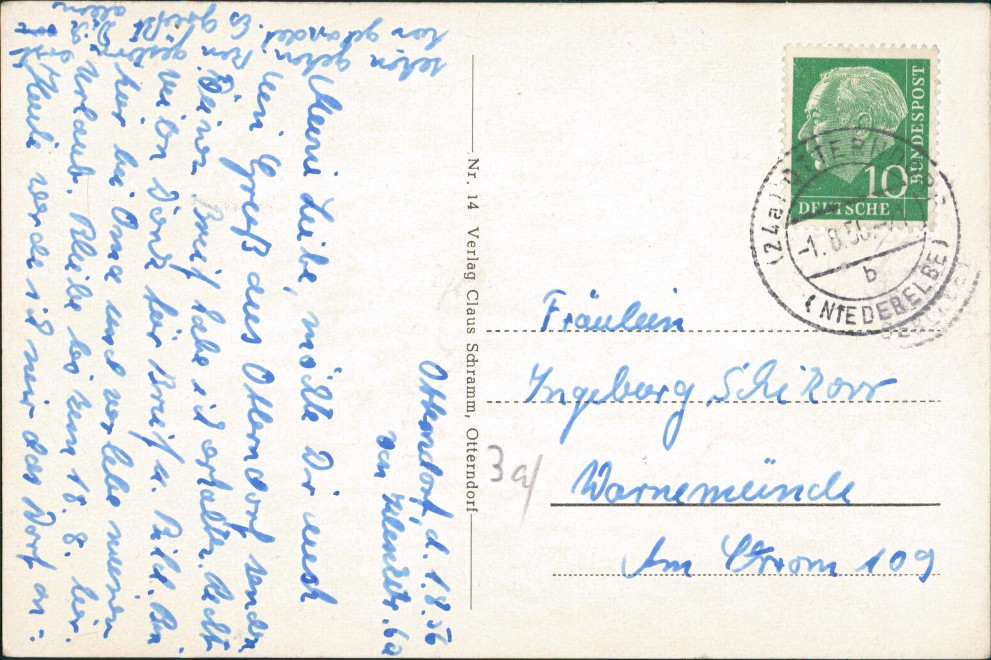 Otterndorf, d. 1.8.56
Meine Liebe, möchte Dir auch
ein Gruß aus Otterndorf senden
Deinen Brief habe ich erhalten. Recht
vielen Dank für Brief u. Bild. Bin
hier bei Oma und verlebe meinen
Urlaub. Bleibe bis zum 18.8. hier.
Heute werde ich mir das Dorf an-
sehen gehen
Es grüßt
Nr. 14 Verlag Claus Schramm, Otterndorf
DEUTSCHE
BUNDESPOST
10
(24a) OTTERNDORF
-1.8.56.
b
(NIEDERELBE)
Fräulein
Ingeborg Schikorr
Warnemünde
Am Strom 109
3a/